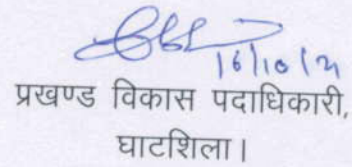 16/10/21
प्रखण्ड विकास पदाधिकारी,
घाटशिला।